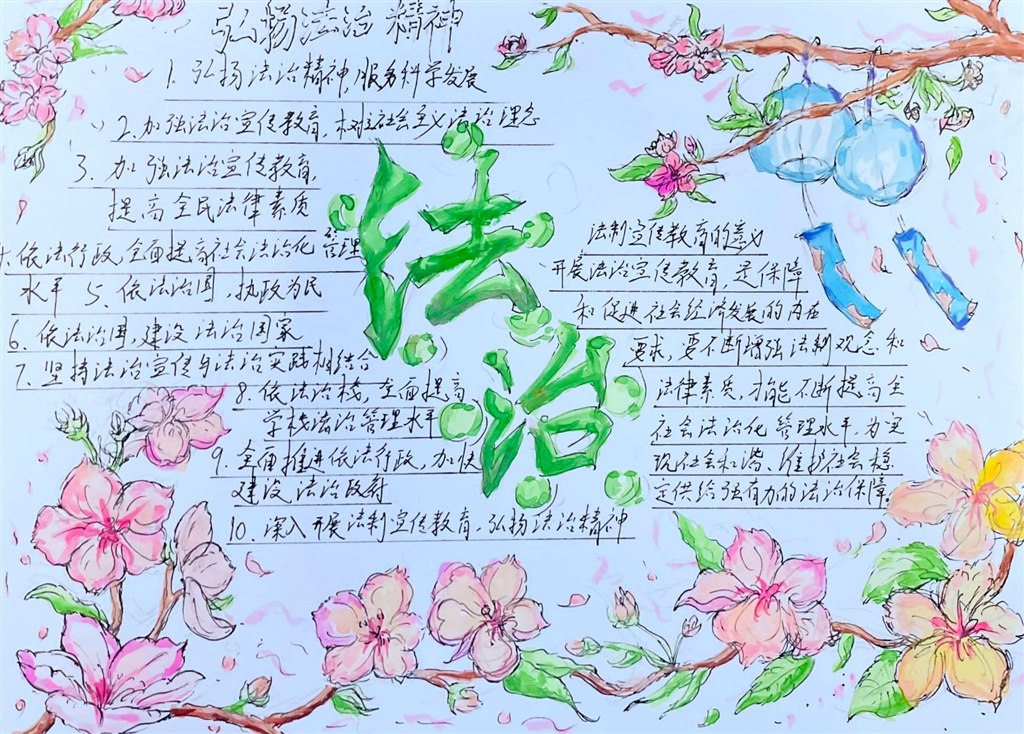 弘扬法治精神
1. 弘扬法治精神,服务科学发展
2.加强法治宣传教育,树立社会主义法治理念
3. 加强法治宣传教育,
提高全民法律素质
4.依法行政,全面提高社会法治化管理
水平 5、依法治国,执政为民
6、依法治国,建设法治国家
7、坚持法治宣传与法治实践相结合
8、依法治校,全面提高
学校法治管理水平
9、全面推进依法行政,加快
建设法治政府
10、深入开展法制宣传教育,弘扬法治精神
法治
法制宣传教育的意义
开展法治宣传教育,是保障
和促进社会经济发展的内在
要求,要不断增强法制观念和
法律素质,才能不断提高全
社会法治化管理水平,为实
现社会和谐、维护社会稳
定供给强有力的法治保障。